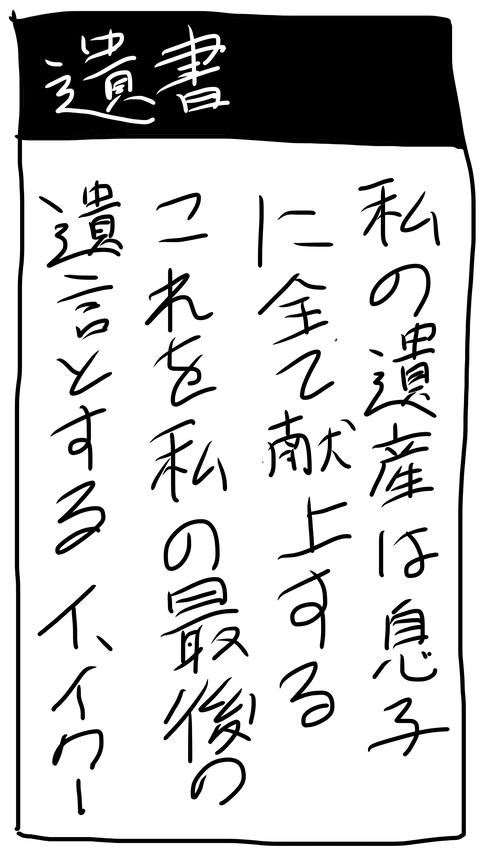 遺書
私の遺産は息子
に全て献上する
これを私の最後の
遺言とする イ、イワー